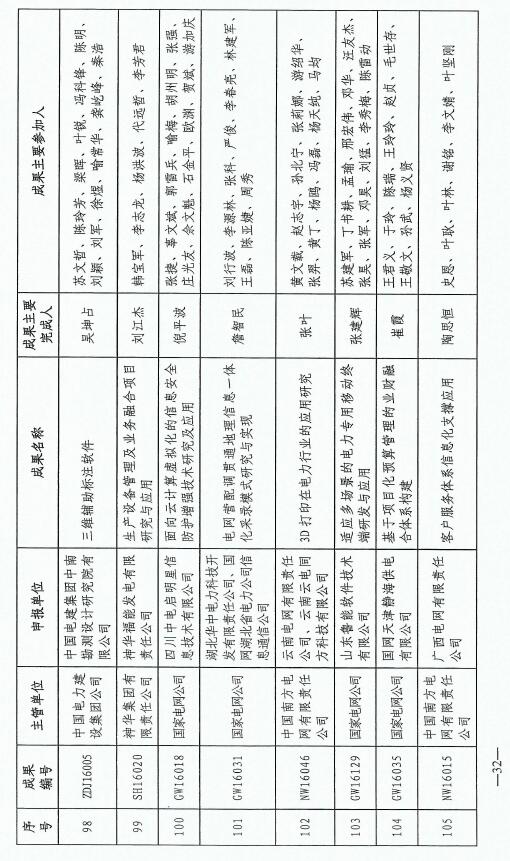 序
号
成果
编号
主管单位
申报单位
成果名称
成果主要
完成人
成果主要参加人
98
ZDJ16005
中国电力建
设集团公司
中国电建集团中南
勘测设计研究院有
限公司
三维辅助标注软件
吴坤占
苏文哲、陈玲芳、梁晖、叶锐、冯科锋、陈明、
刘颖、刘军、徐煜、喻常华、龚屹峰、秦浩
99
SH16020
神华集团有
限责任公司
神华福能发电有限
责任公司
生产设备管理及业务融合项目
研究与应用
刘江杰
韩宝军、李志龙、杨洪波、代远哲、李芳君
100
GW16018
国家电网公司
四川中电启明星信
息技术有限公司
面向云计算虚拟化的信息安全
防护增强技术研究及应用
倪平波
张捷、辜文斌、郭雷兵、喻梅、胡州明、张强、
庄光友、余文魁、石金平、欧渊、贺斌、游加庆
101
GW16031
国家电网公司
湖北华中电力科技开
发有限责任公司、国
网湖北省电力公司信
息通信公司
电网营配调贯通地理信息一体
化采录模式研究与实现
詹智民
刘行波、李源林、张科、严俊、李春亮、林建军、
王磊、陈亚婕、周秀
102
NW16046
中国南方电
网有限责任
公司
云南电网有限责任
公司、云南云电同
方科技有限公司
3D打印在电力行业的应用研究
张叶
黄文载、赵志宇、孙北宁、张莉娜、游绍华、
张羿、黄丁、杨鸥、冯磊、杨天统、马均
103
GW16129
国家电网公司
山东鲁能软件技术
有限公司
适应多场景的电力专用移动终
端研发与应用
张建辉
苏建军、丁书耕、孟瑜、邢宏伟、邓华、汪友杰、
张昊、张军、邓昊、刘猛、李秀梅、陈雷动
104
GW16035
国家电网公司
国网天津静海供电
有限公司
基于项目化预算管理的业财融
合体系构建
崔霞
王君义、于玲、陈瑞、王玲玲、赵贞、毛世存、
王敬文、孙武、杨义贤
105
NW16015
中国南方电
网有限责任
公司
广西电网有限责任
公司
客户服务体系信息化支撑应用
陶思恒
史恩、叶耿、叶林、谢铭、李文婧、叶坚刚
—32—